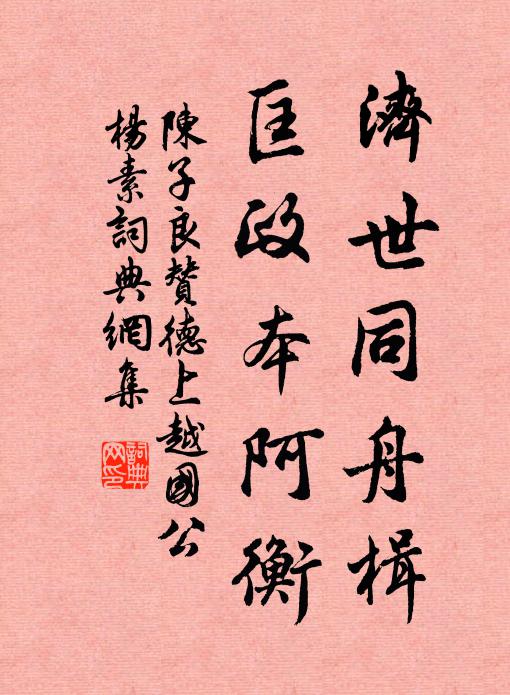 濟世同舟楫
匡政本阿衡
陳子良贊德上越國公
楊素詞典網集
詞典網印